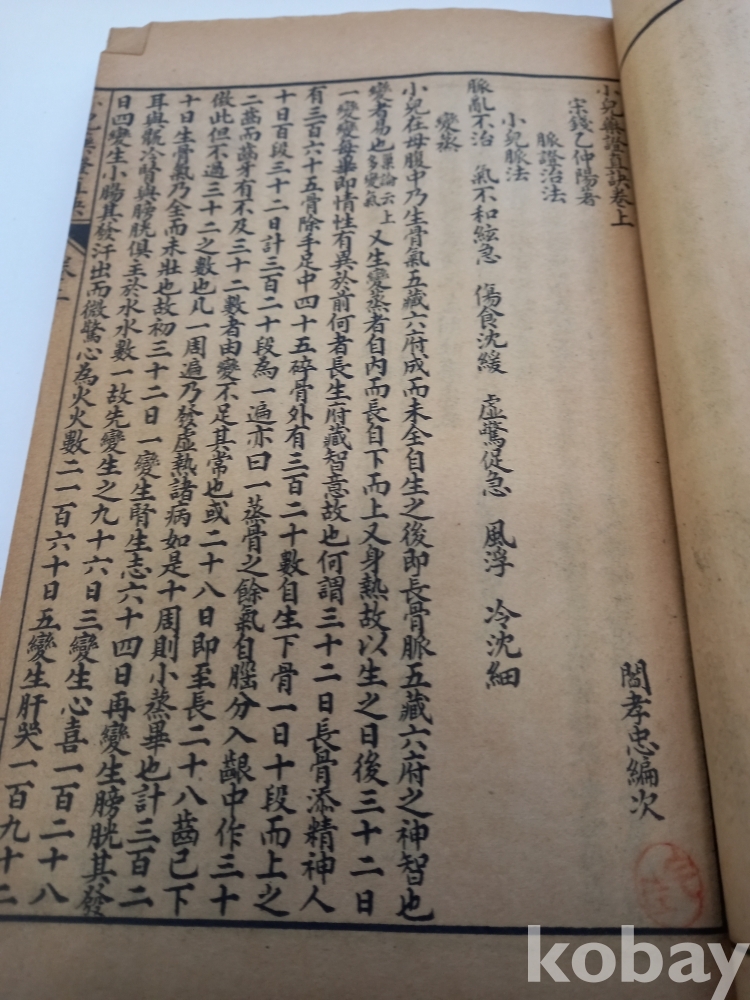 小兒藥證直訣卷上
宋錢乙仲陽著 閻孝忠編次
脈證治法
小兒脈法
脈亂不治 氣不和絃急 傷食沈緩 虛驚促急 風浮 冷沈細
變蒸
小兒在母腹中乃生骨氣五藏六府成而未全自生之後即長骨脈五藏六府之神智也
變者易也巢論云上多變氣又生變蒸者自內而長自下而上又身熱故以生之日後三十二日
一變變每畢即情性有異於前何者長生府藏智意故也何謂三十二日長骨添精神人
有三百六十五骨除手足中四十五碎骨外有三百二十數自生下骨一日十段而上之
十日百段三十二日計三百二十段為一遍亦曰一蒸骨之餘氣自腦分入齦中作三十
二齒而齒牙有不及三十二數者由變不足其常也或二十八日即至長二十八齒已下
倣此但不過三十二之數也凡一周遍乃發虛熱諸病如是十周則小蒸畢也計三百二
十日生骨氣乃全而未壯也故初三十二日一變生腎生志六十四日再變生膀胱其發
耳與骫冷腎與膀胱俱主於水水數一故先變生之九十六日三變生心喜一百二十八
日四變生小腸其發汗出而微驚心為火火數二一百六十日五變生肝哭一百九十二
kobay